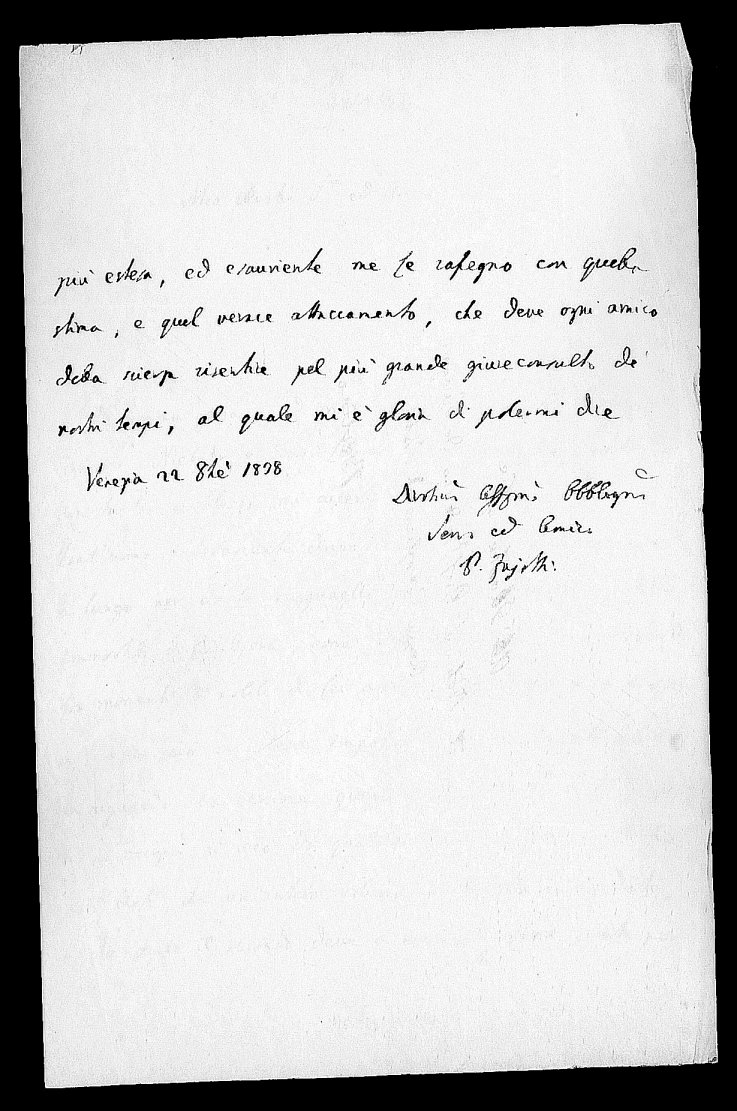 più estesa, ed esauriente me le rassegno con quella
stima, e quel verace attaccamento, che deve ogni amico
della scienza risentire pel più grande giureconsulto de'
nostri tempi, al quale mi è gloria di potermi dire
Venezia 22 8bre 1838
Servo ed Amico
P. Zajotti